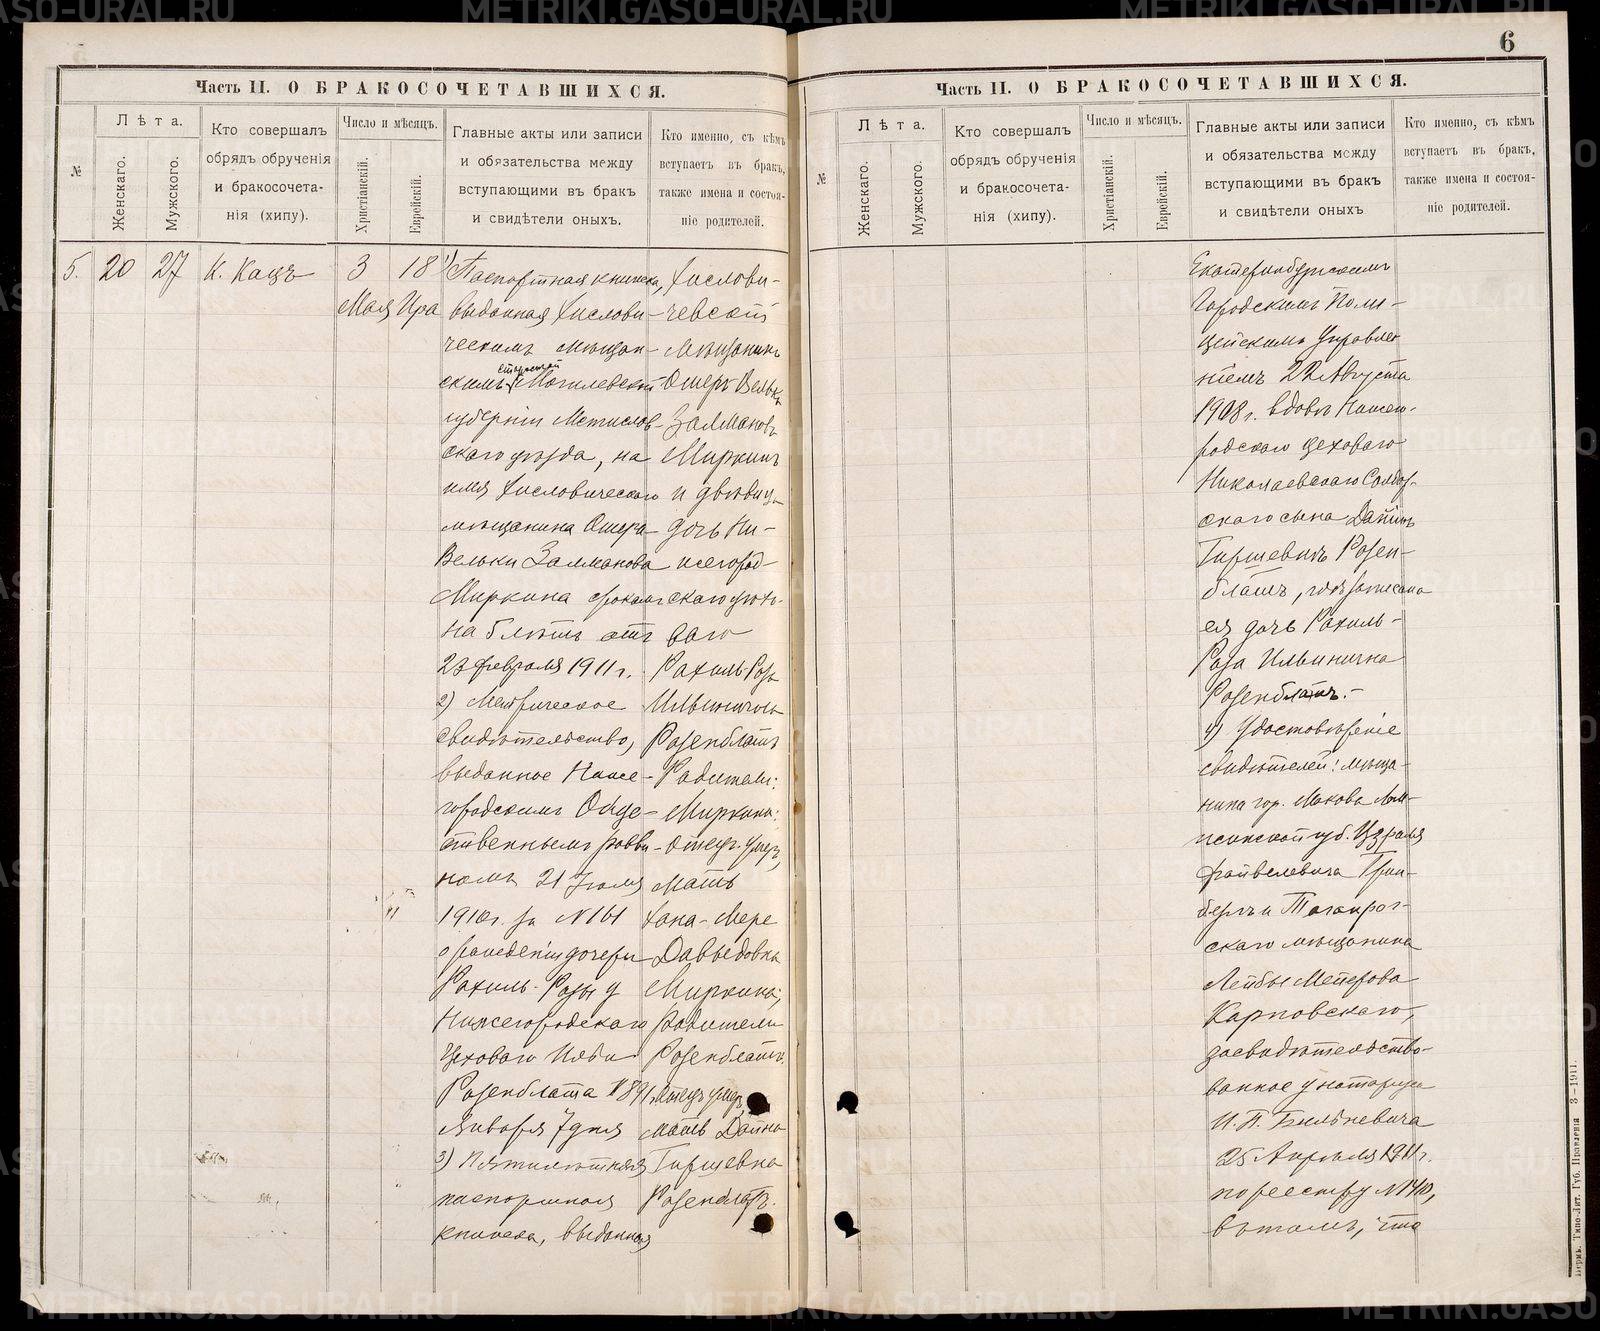 6
Часть II. О БРАКОСОЧЕТАВШИХСЯ.
№
Лѣта.
Женскаго.
Мужского.
Кто совершалъ
обрядъ обрученія
и бракосочета-
нія (хипу).
Число и мѣсяцъ.
Христіанскій.
Еврейскій.
Главные акты или записи
и обязательства между
вступающими въ бракъ
и свидѣтели оныхъ.
Кто именно, съ кѣмъ
вступаетъ въ бракъ,
также имена и состоя-
ніе родителей.
5.
20
27
К. Кацъ
3
Мая
18
Ира
1) Паспортная книжка,
выданная Хислови-
ческимъ мѣщан-
скимъ старостой Могилевской
губерніи Мстислов-
скаго уѣзда, на
имя Хисловическаго
мѣщанина Ошера-
Вельки Залманова
Миркина срокомъ
на 5 лѣтъ отъ
23 февраля 1911 г.
2) Метрическое
свидѣтельство,
выданное Ниже-
городскимъ Обще-
ственнымъ равви-
номъ 21 Іюля
1910 г. за № 161
о рожденіи дочери
Рахиль-Розы у
Нижегородскаго
Цеховаго Ильи
Розенблата 1891 г.
Января 7 дня
3) Пятилѣтняя
паспортная
книжка, выданная
Хислови-
чевскій
Мѣщанинъ
Ошеръ Велька
Залмановъ
Миркинъ
и дѣвица
дочь Ни-
жегород-
скаго цехо-
ваго
Рахиль-Роза
Ильинична
Розенблатъ
Родители:
Миркина:
Отецъ умеръ,
мать
Хана-Мере
Давыдовна
Миркина;
родители
Розенблатъ:
Отецъ умеръ,
мать Дайна
Гиршевна
Розенблатъ.
Часть II. О БРАКОСОЧЕТАВШИХСЯ.
№
Лѣта.
Женскаго.
Мужского.
Кто совершалъ
обрядъ обрученія
и бракосочета-
нія (хипу).
Число и мѣсяцъ.
Христіанскій.
Еврейскій.
Главные акты или записи
и обязательства между
вступающими въ бракъ
и свидѣтели оныхъ
Кто именно, съ кѣмъ
вступаетъ въ бракъ,
также имена и состоя-
ніе родителей.
Екатеринбургскимъ
Городскимъ Поли-
цейскимъ Управле-
ніемъ 22 Августа
1908 г. вдовѣ Нижего-
родскаго цеховаго
Николаевскаго Солдат-
скаго сына Дайнѣ
Гиршевнѣ Розен-
блатъ, гдѣ записана
ея дочь Рахиль-
Роза Ильинична
Розенблатъ.-
4) Удостовѣреніе
свидѣтелей: мѣща-
нина гор. Макова Лом-
жинской губ. Израиля
Файвелевича Грин-
берга и Таганрог-
скаго мѣщанина
Лейбы Меерова
Карповскаго,
засвидѣтельство-
ванное у нотаріуса
И. П. Билькевича
25 Апрѣля 1911 г.
по реестру
въ томъ, что
Пермь. Типо-Лит. Губ. Правленія 3-1911.
METRIKI.GASO-URAL.RU